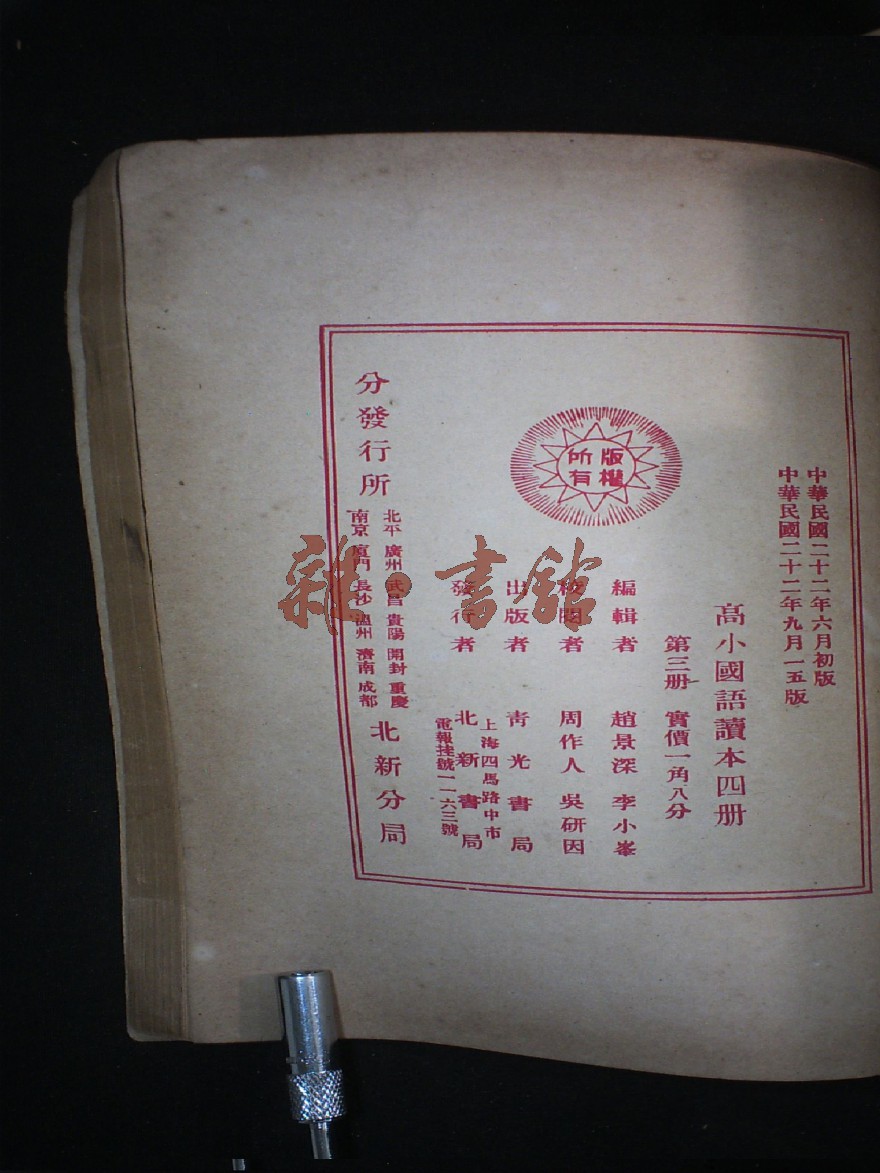 中華民國二十二年六月初版
中華民國二十二年九月一五版
高小國語讀本四册
第三册 實價一角八分
版權
所有
編輯者 趙景深 李小峯
校閱者 周作人 吳研因
出版者 青光書局
發行者
上海四馬路中市
北新書局
電報挂號一一六三號
分發行所
北平 廣州 武昌 貴陽 開封 重慶
南京 廈門 長沙 温州 濟南 成都
北新分局
雜·書館